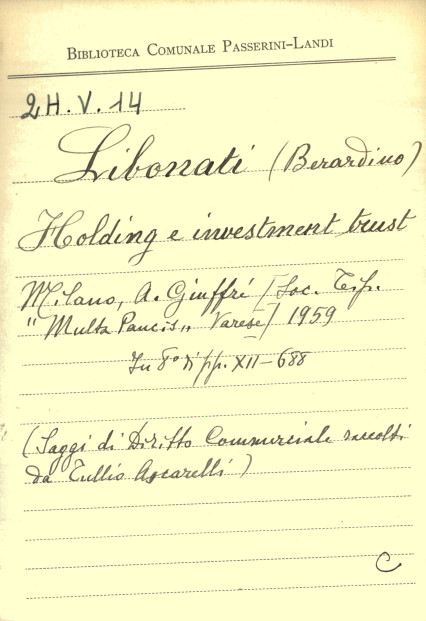 BIBLIOTECA COMUNALE PASSERINI-LANDI
2H.V.14
Libonati (Berardino)
Holding e investment trust
Milano, A. Giuffré [Soc. Tip.
"Multa Paucis" Varese] 1959
In 8° di pp. XII-688
(Saggi di Diritto Commerciale raccolti
da Tullio Ascarelli)
C